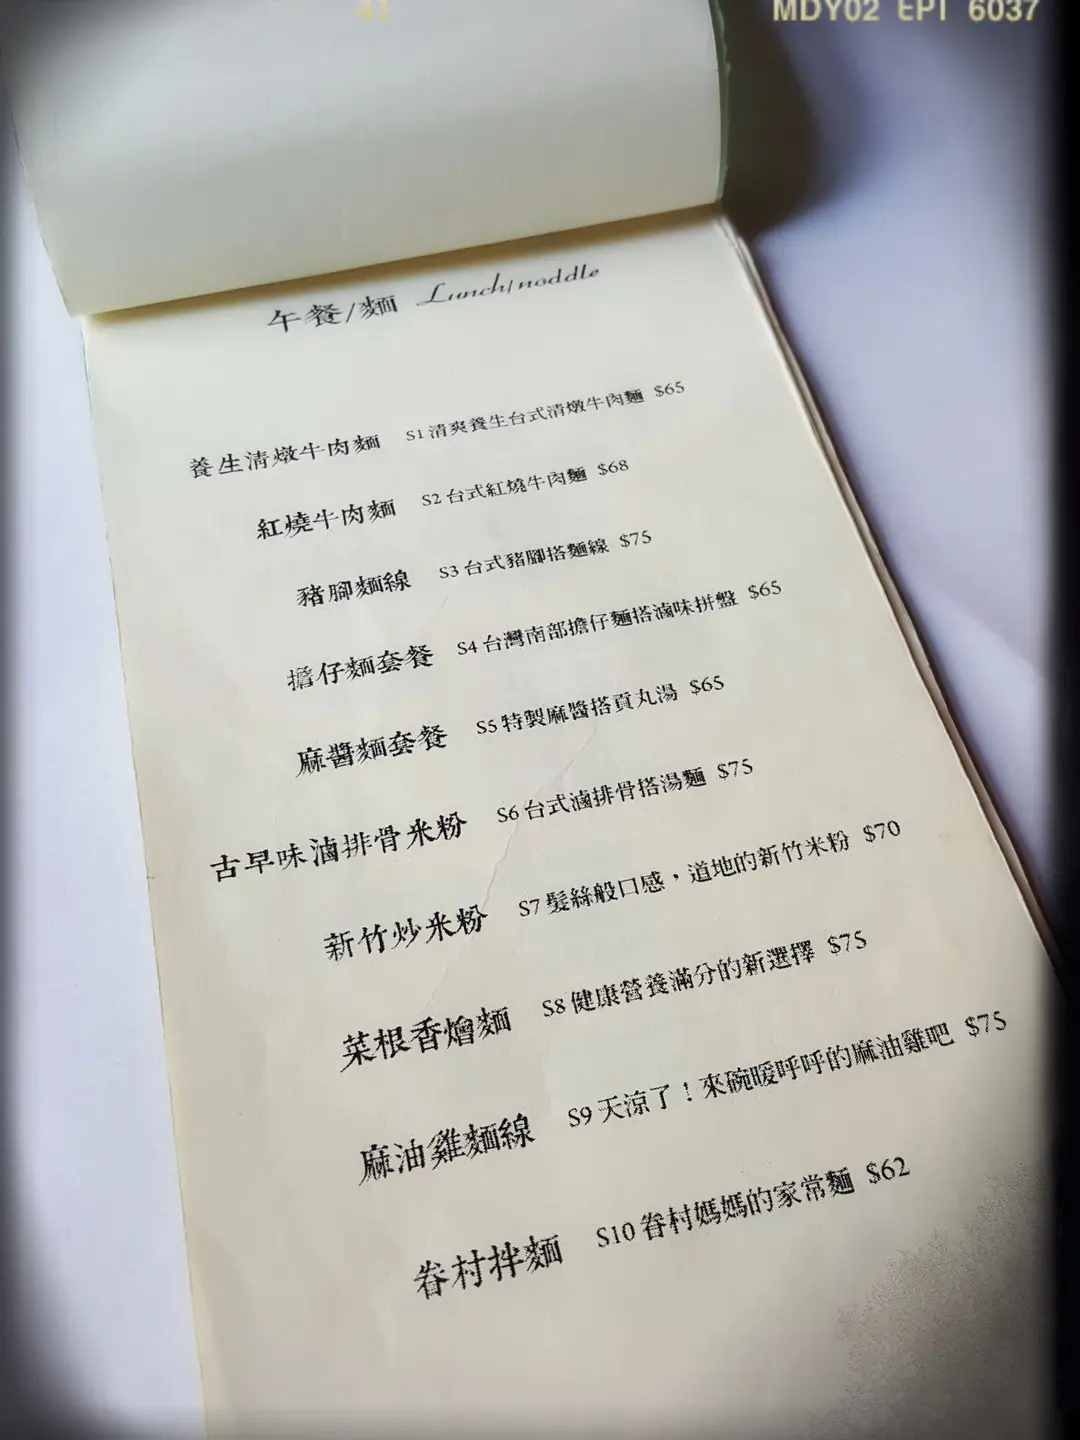 41
MDY02 EPI 6037
午餐/麵 Lunch/noddle
養生清燉牛肉麵 S1清爽養生台式清燉牛肉麵 $65
紅燒牛肉麵 S2台式紅燒牛肉麵 $68
豬腳麵線 S3台式豬腳搭麵線 $75
擔仔麵套餐 S4台灣南部擔仔麵搭滷味拼盤 $65
麻醬麵套餐 S5特製麻醬搭貢丸湯 $65
古早味滷排骨米粉 S6台式滷排骨搭湯麵 $75
新竹炒米粉 S7髮絲般口感，道地的新竹米粉 $70
菜根香燴麵 S8健康營養滿分的新選擇 $75
麻油雞麵線 S9天涼了！來碗暖呼呼的麻油雞吧 $75
眷村拌麵 S10眷村媽媽的家常麵 $62